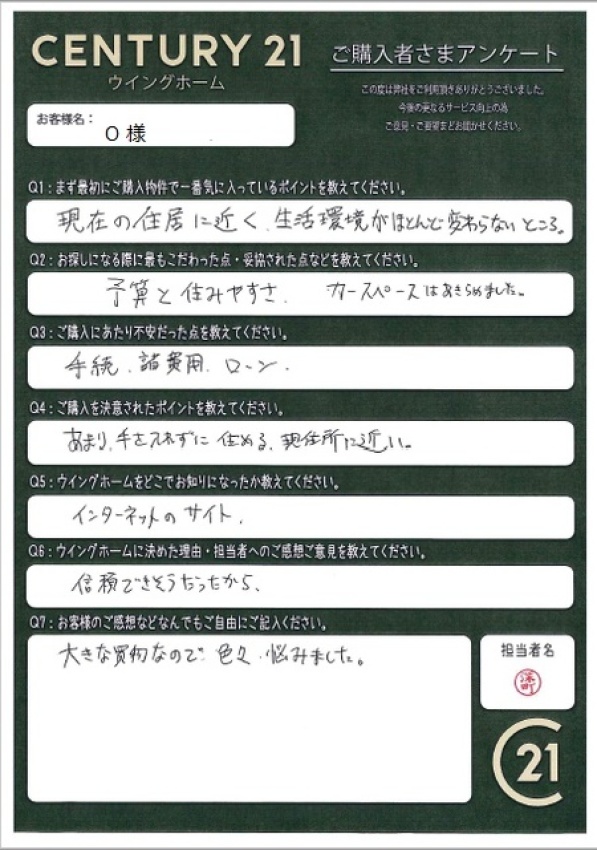 CENTURY 21
ウイングホーム
ご購入者さまアンケート
この度は弊社をご利用頂きありがとうございました。
今後の更なるサービス向上の為
ご意見・ご要望をお聞かせください。
お客様名:
O 様
Q1:まず最初にご購入物件で一番気に入っているポイントを教えてください。
現在の住居に近く、生活環境がほとんど変わらないところ。
Q2:お探しになる際に最もこだわった点・妥協された点などを教えてください。
予算と住みやすさ、カースペースはあきらめました。
Q3:ご購入にあたり不安だった点を教えてください。
手続、諸費用、ローン.
Q4:ご購入を決意されたポイントを教えてください。
あまり、手を入れずに住める、現住所に近い。
Q5:ウイングホームをどこでお知りになったか教えてください。
インターネットのサイト.
Q6:ウイングホームに決めた理由・担当者へのご感想ご意見を教えてください。
信頼できそうだったから、
Q7:お客様のご感想などなんでもご自由にご記入ください。
大きな買物なので、色々、悩みました。
担当者名
深町
C21